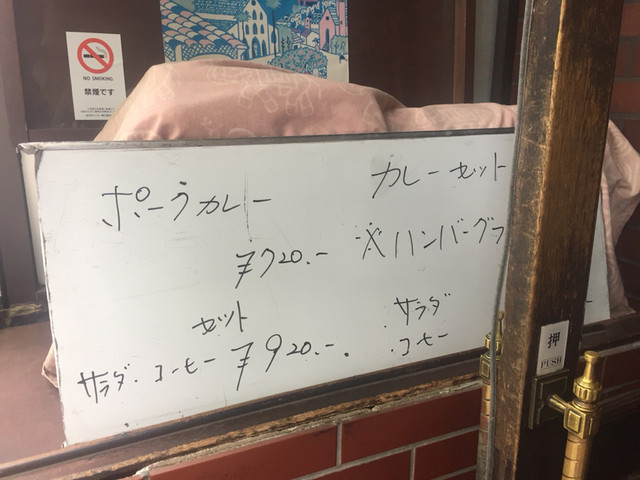 NO SMOKING
禁煙です
ポーラカレー
¥720.-
セット
サラダ. コーヒー ¥920.-.
カレーセット
※ハンバーグ
・サラダ
・コーヒー
押
PUSH